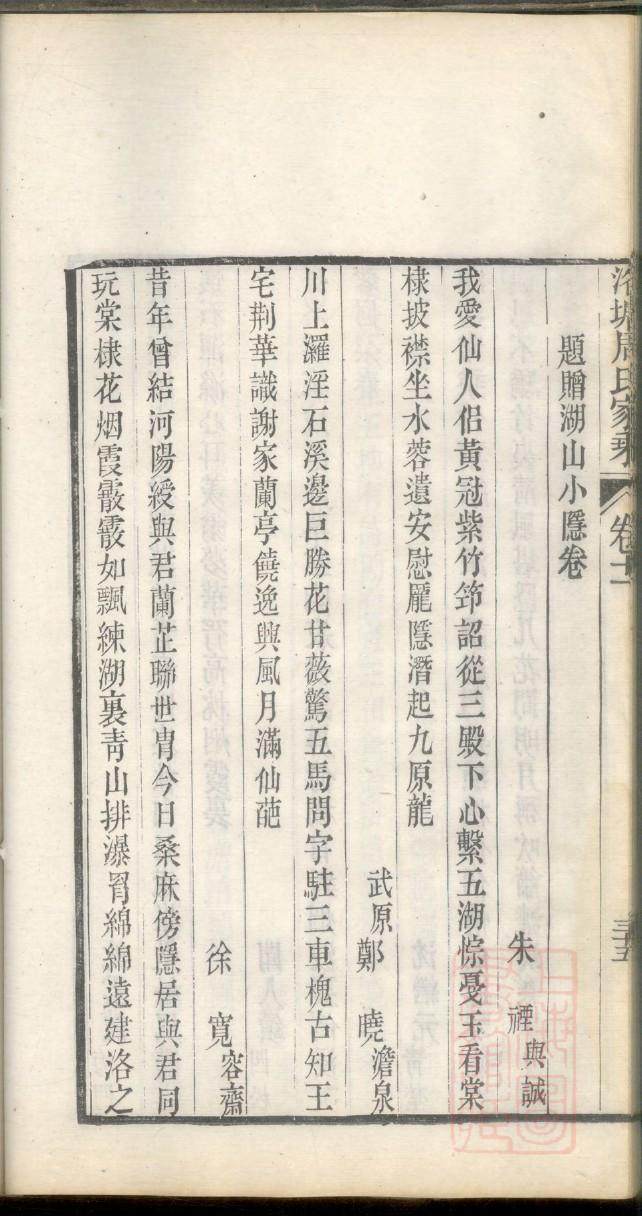 洛塘周氏家乘 卷十二 三十五
題贈湖山小隱卷
朱 禋 與誠
我愛仙人侶黃冠紫竹筇詔從三殿下心繫五湖悰戛玉看棠
棣披襟坐水蓉遺安慰龐隱潛起九原龍
武原鄭 曉 澹泉
川上濯淫石溪邊巨勝花甘薇驚五馬問字駐三車槐古知王
宅荆華識謝家蘭亭饒逸興風月滿仙葩
徐 寬 容齋
昔年曾結河陽綬與君蘭芷聯世胄今日桑麻傍隱居與君同
玩棠棣花烟霞霰霰如飄練湖裏青山排瀑罥綿綿遠建洛之